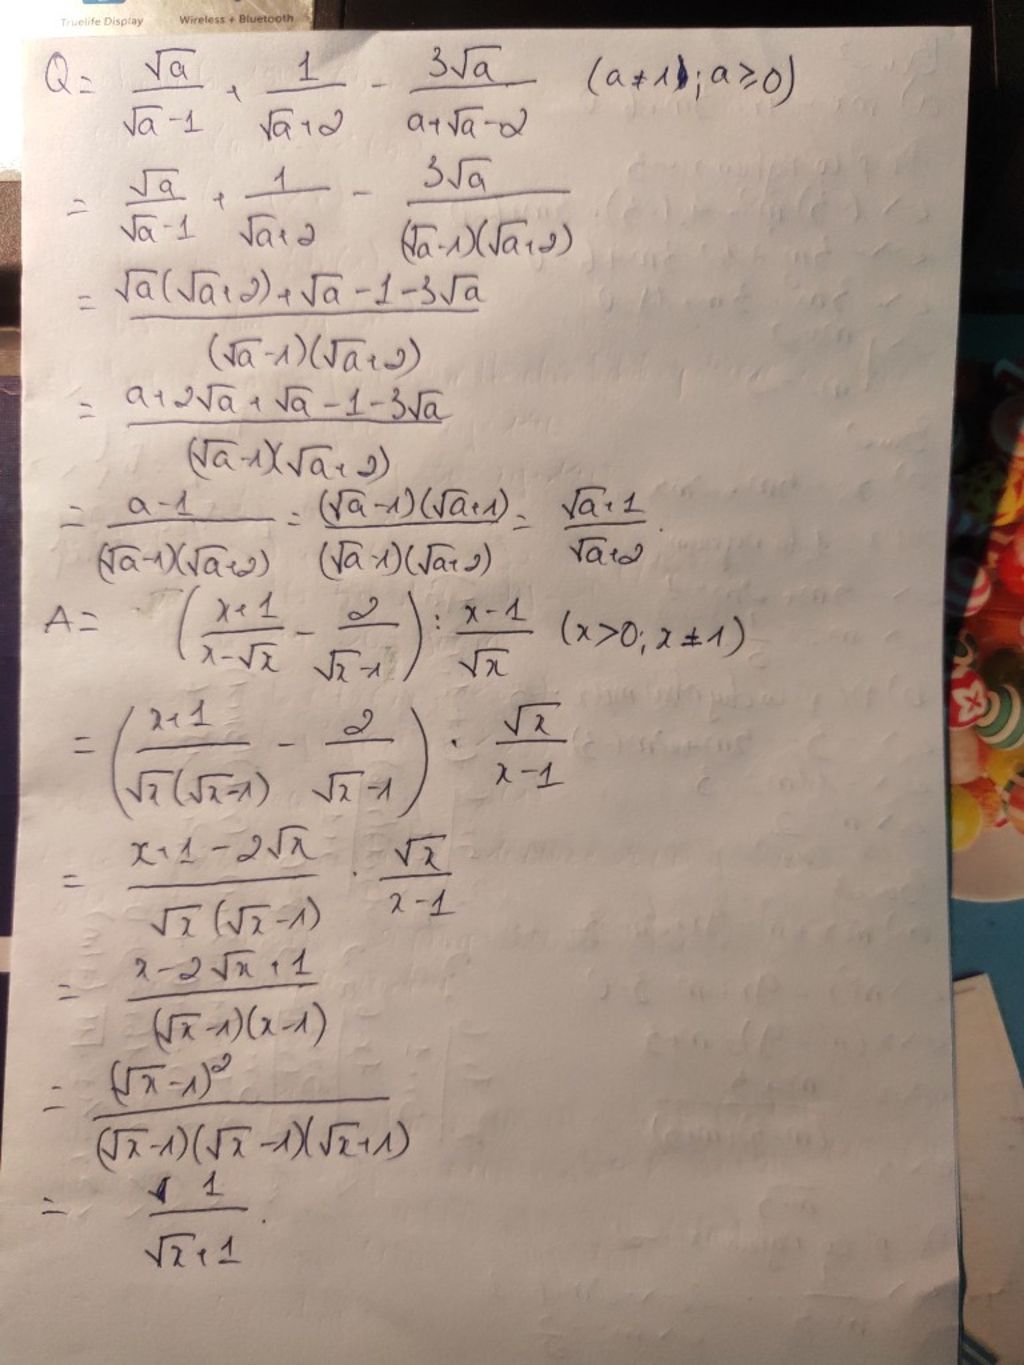 Truelife Display Wireless + Bluetooth
Q = √a/(√a-1) + 1/(√a+2) - 3√a/(a+√a-2) (a≠1; a≥0)
= √a/(√a-1) + 1/(√a+2) - 3√a/((√a-1)(√a+2))
= (√a(√a+2)+√a-1-3√a)/((√a-1)(√a+2))
= (a+2√a+√a-1-3√a)/((√a-1)(√a+2))
= (a-1)/((√a-1)(√a+2)) = ((√a-1)(√a+1))/((√a-1)(√a+2)) = (√a+1)/(√a+2).
A = ((x+1)/(x-√x) - 2/(√x-1)) : (x-1)/√x (x>0; x≠1)
= ((x+1)/(√x(√x-1)) - 2/(√x-1)) · √x/(x-1)
= (x+1-2√x)/(√x(√x-1)) · √x/(x-1)
= (x-2√x+1)/((√x-1)(x-1))
= (√x-1)²/((√x-1)(√x-1)(√x+1))
= 1/(√x+1).